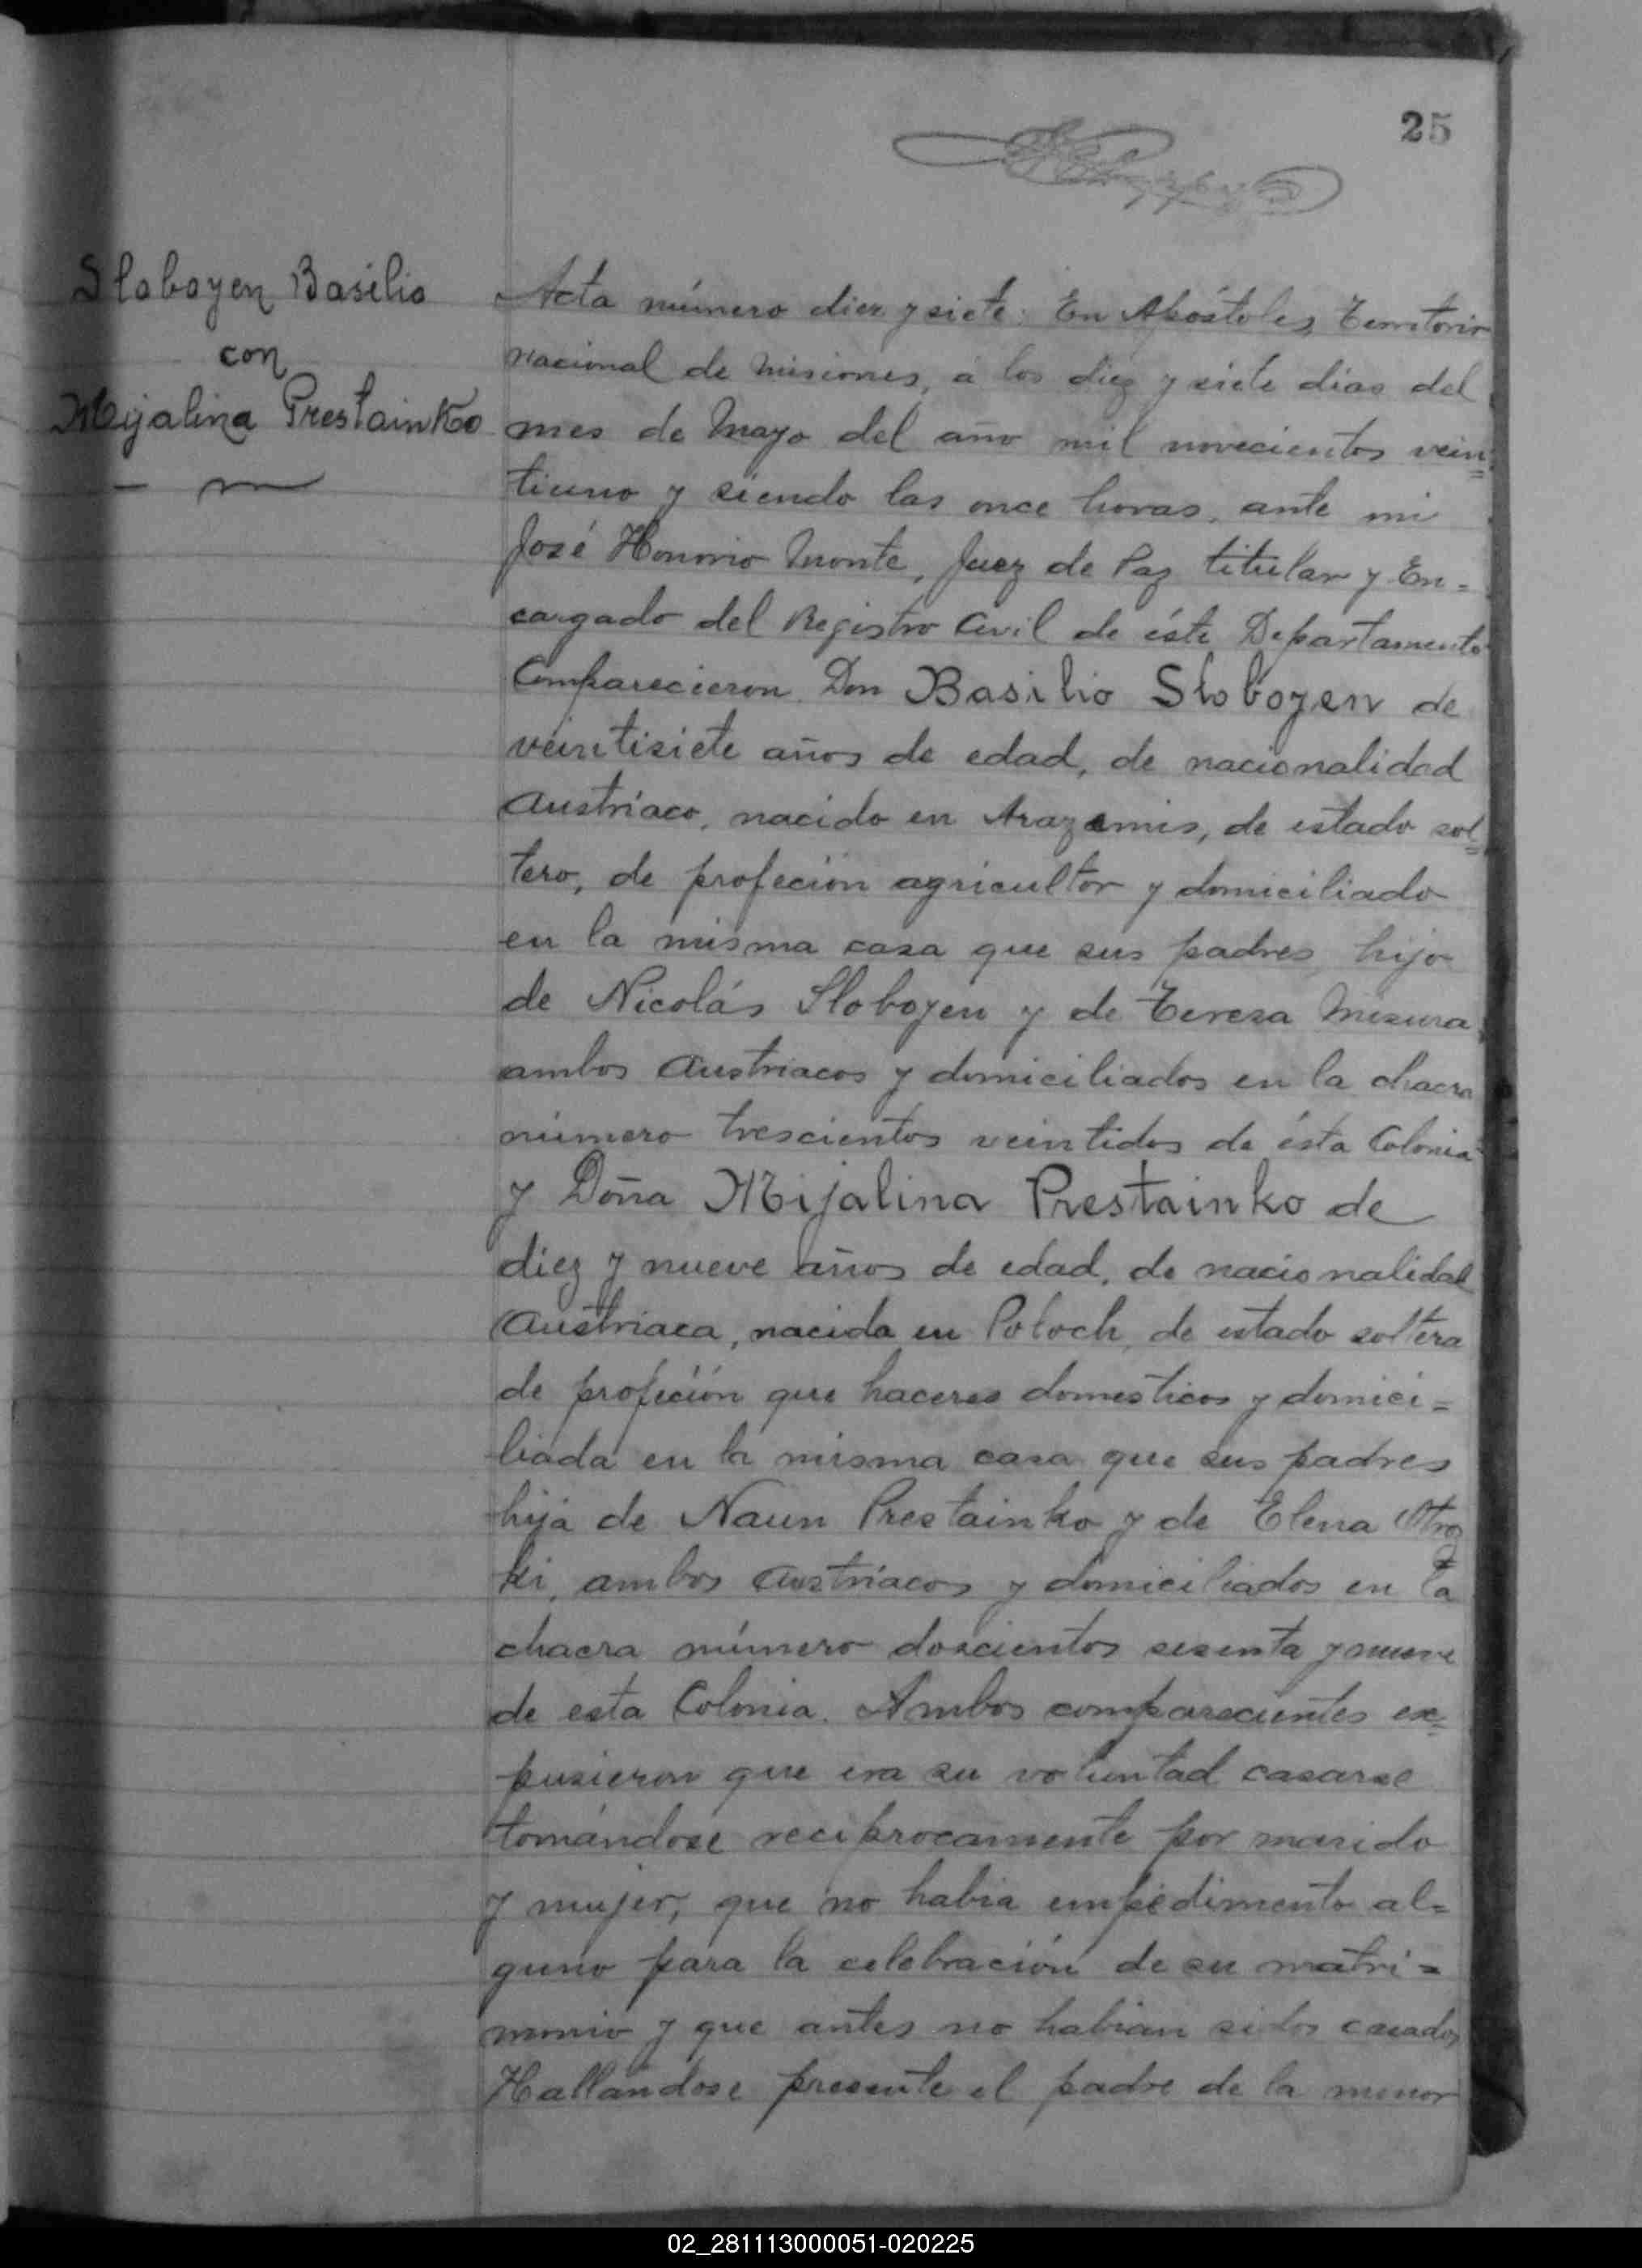 25
Sloboyen Basilio
con
Mijalina Prestainko
Acta número diez y siete: En Apóstoles, Territorio
nacional de Misiones, á los diez y siete dias del
mes de Mayo del año mil novecientos vein=
tiuno y siendo las once horas, ante mi
José Honorio Monte, Juez de Paz titular y En=
cargado del Registro Civil de éste Departamento
Comparecieron Don Basilio Sloboyen de
veintisiete años de edad, de nacionalidad
Austríaco, nacido en , de estado sol=
tero, de profeción agricultor y domiciliado
en la misma casa que sus padres, hijo
de Nicolás Sloboyen y de Teresa Misura
ambos Austriacos y domiciliados en la chacra
número trescientos veintidos de ésta Colonia
y Doña Mijalina Prestainko de
diez y nueve años de edad, de nacionalidad
Austriaca, nacida en Potoch, de estado soltera
de profeción que haceres domesticos y domici=
liada en la misma casa que sus padres
hija de Naun Prestainko y de Elena
ki, ambos Austríacos y domiciliados en la
chacra número doscientos sesenta y nueve
de esta Colonia. Ambos comparecientes ex=
pusieron que era su voluntad casarse
tomándose reciprocamente por marido
y mujer, que no habia impedimento al=
guno para la celebración de su matri=
monio y que antes no habian sidos casados
Hallandose presente el padre de la menor
02_281113000051-020225